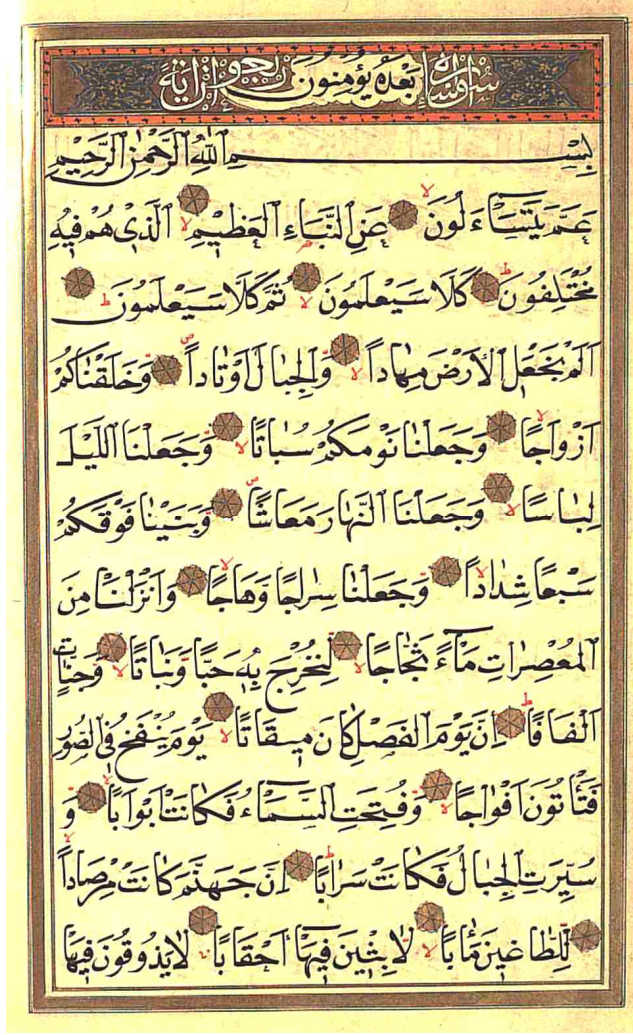 بِسْمِ اللّٰهِ الرَّحْمٰنِ الرَّحِيمِ
عَمَّ يَتَسَاءَلُونَ عَنِ النَّبَاءِ الْعَظِيمِ الَّذِي هُمْ فِيهِ
مُخْتَلِفُونَ كَلَّا سَيَعْلَمُونَ ثُمَّ كَلَّا سَيَعْلَمُونَ
اَلَمْ نَجْعَلِ الْاَرْضَ مِهَاداً وَالْجِبَالَ اَوْتَاداً وَخَلَقْنَاكُمْ
اَزْوَاجًا وَجَعَلْنَا نَوْمَكُمْ سُبَاتًا وَجَعَلْنَا اللَّيْلَ
لِبَاسًا وَجَعَلْنَا النَّهَارَ مَعَاشًا وَبَنَيْنَا فَوْقَكُمْ
سَبْعًا شِدَاداً وَجَعَلْنَا سِرَاجًا وَهَّاجًا وَاَنْزَلْنَا مِنَ
الْمُعْصِرَاتِ مَاءً ثَجَّاجًا لِنُخْرِجَ بِهِ حَبًّا وَنَبَاتًا وَجَنَّاتٍ
اَلْفَافًا اِنَّ يَوْمَ الْفَصْلِ كَانَ مِيقَاتًا يَوْمَ يُنْفَخُ فِي الصُّورِ
فَتَأْتُونَ اَفْوَاجًا وَفُتِحَتِ السَّمَاءُ فَكَانَتْ اَبْوَابًا وَ
سُيِّرَتِ الْجِبَالُ فَكَانَتْ سَرَابًا اِنَّ جَهَنَّمَ كَانَتْ مِرْصَاداً
لِلطَّاغِينَ مَاٰبًا لَابِثِينَ فِيهَا اَحْقَابًا لَا يَذُوقُونَ فِيهَا